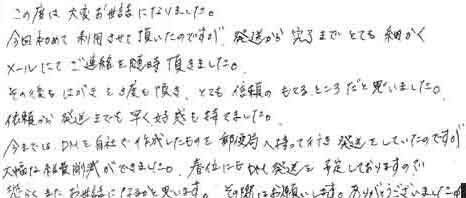 この度は大変お世話になりました。
今回初めて利用させて頂いたのですが、発送から完了までとても細かく
メールにてご連絡を随時頂きました。
その後もはがきも頂き、とても信頼のもてるところだと思いました。
依頼から発送までも早く好感も持てました。
今までは、DMを自社で作成したものを郵便局へ持って行き発送をしていたのですが
大幅な経費削減ができました。春位にもDM発送を予定しておりますので
恐らくまたお世話になるかと思います。その際はお願いします。ありがとうございました